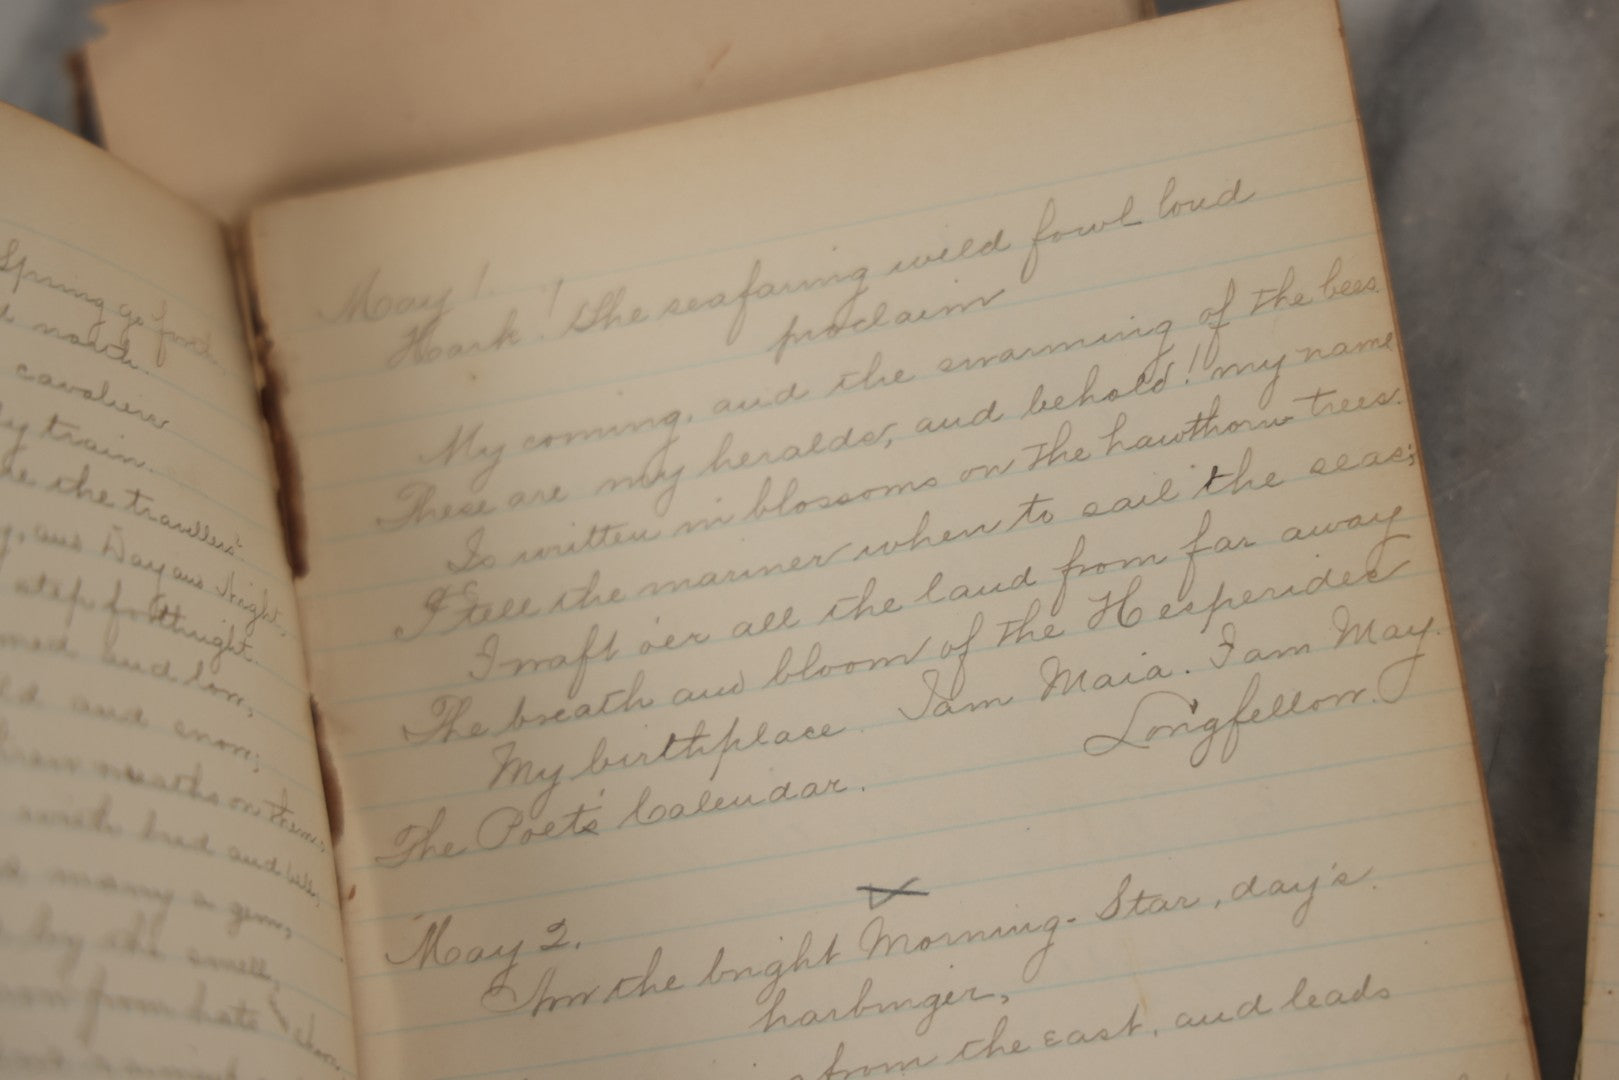 Spring go forth
north.
cavaliers
train.
the travellers'
and Day and Night,
step forthright.
and lorn,
and snow;
wreaths on them,
with bud and bell,
many a gem,
by the smell,
from hate
May 1.
Hark! The seafaring wild fowl loud
proclaim
My coming, and the swarming of the bees.
These are my heralds, and behold! my name
Is written in blossoms on the hawthorn trees.
I tell the mariner when to sail the seas;
I waft o'er all the land from far away
The breath and bloom of the Hesperides
My birthplace. I am Maia. I am May.
The Poet's Calendar. Longfellow.
May 2.
Now the bright Morning-Star, day's
harbinger,
from the east, and leads